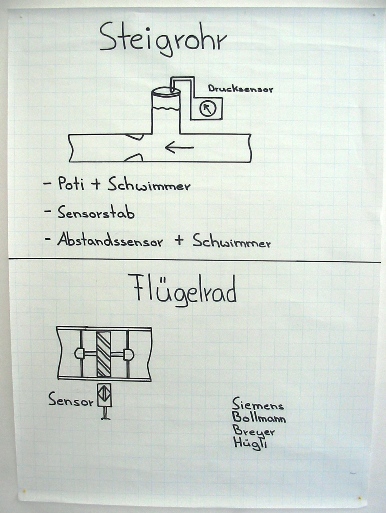 Steigrohr
Drucksensor
- Poti + Schwimmer
- Sensorstab
- Abstandssensor + Schwimmer
Flügelrad
Sensor
Siemens
Bollmann
Breyer
Hügli